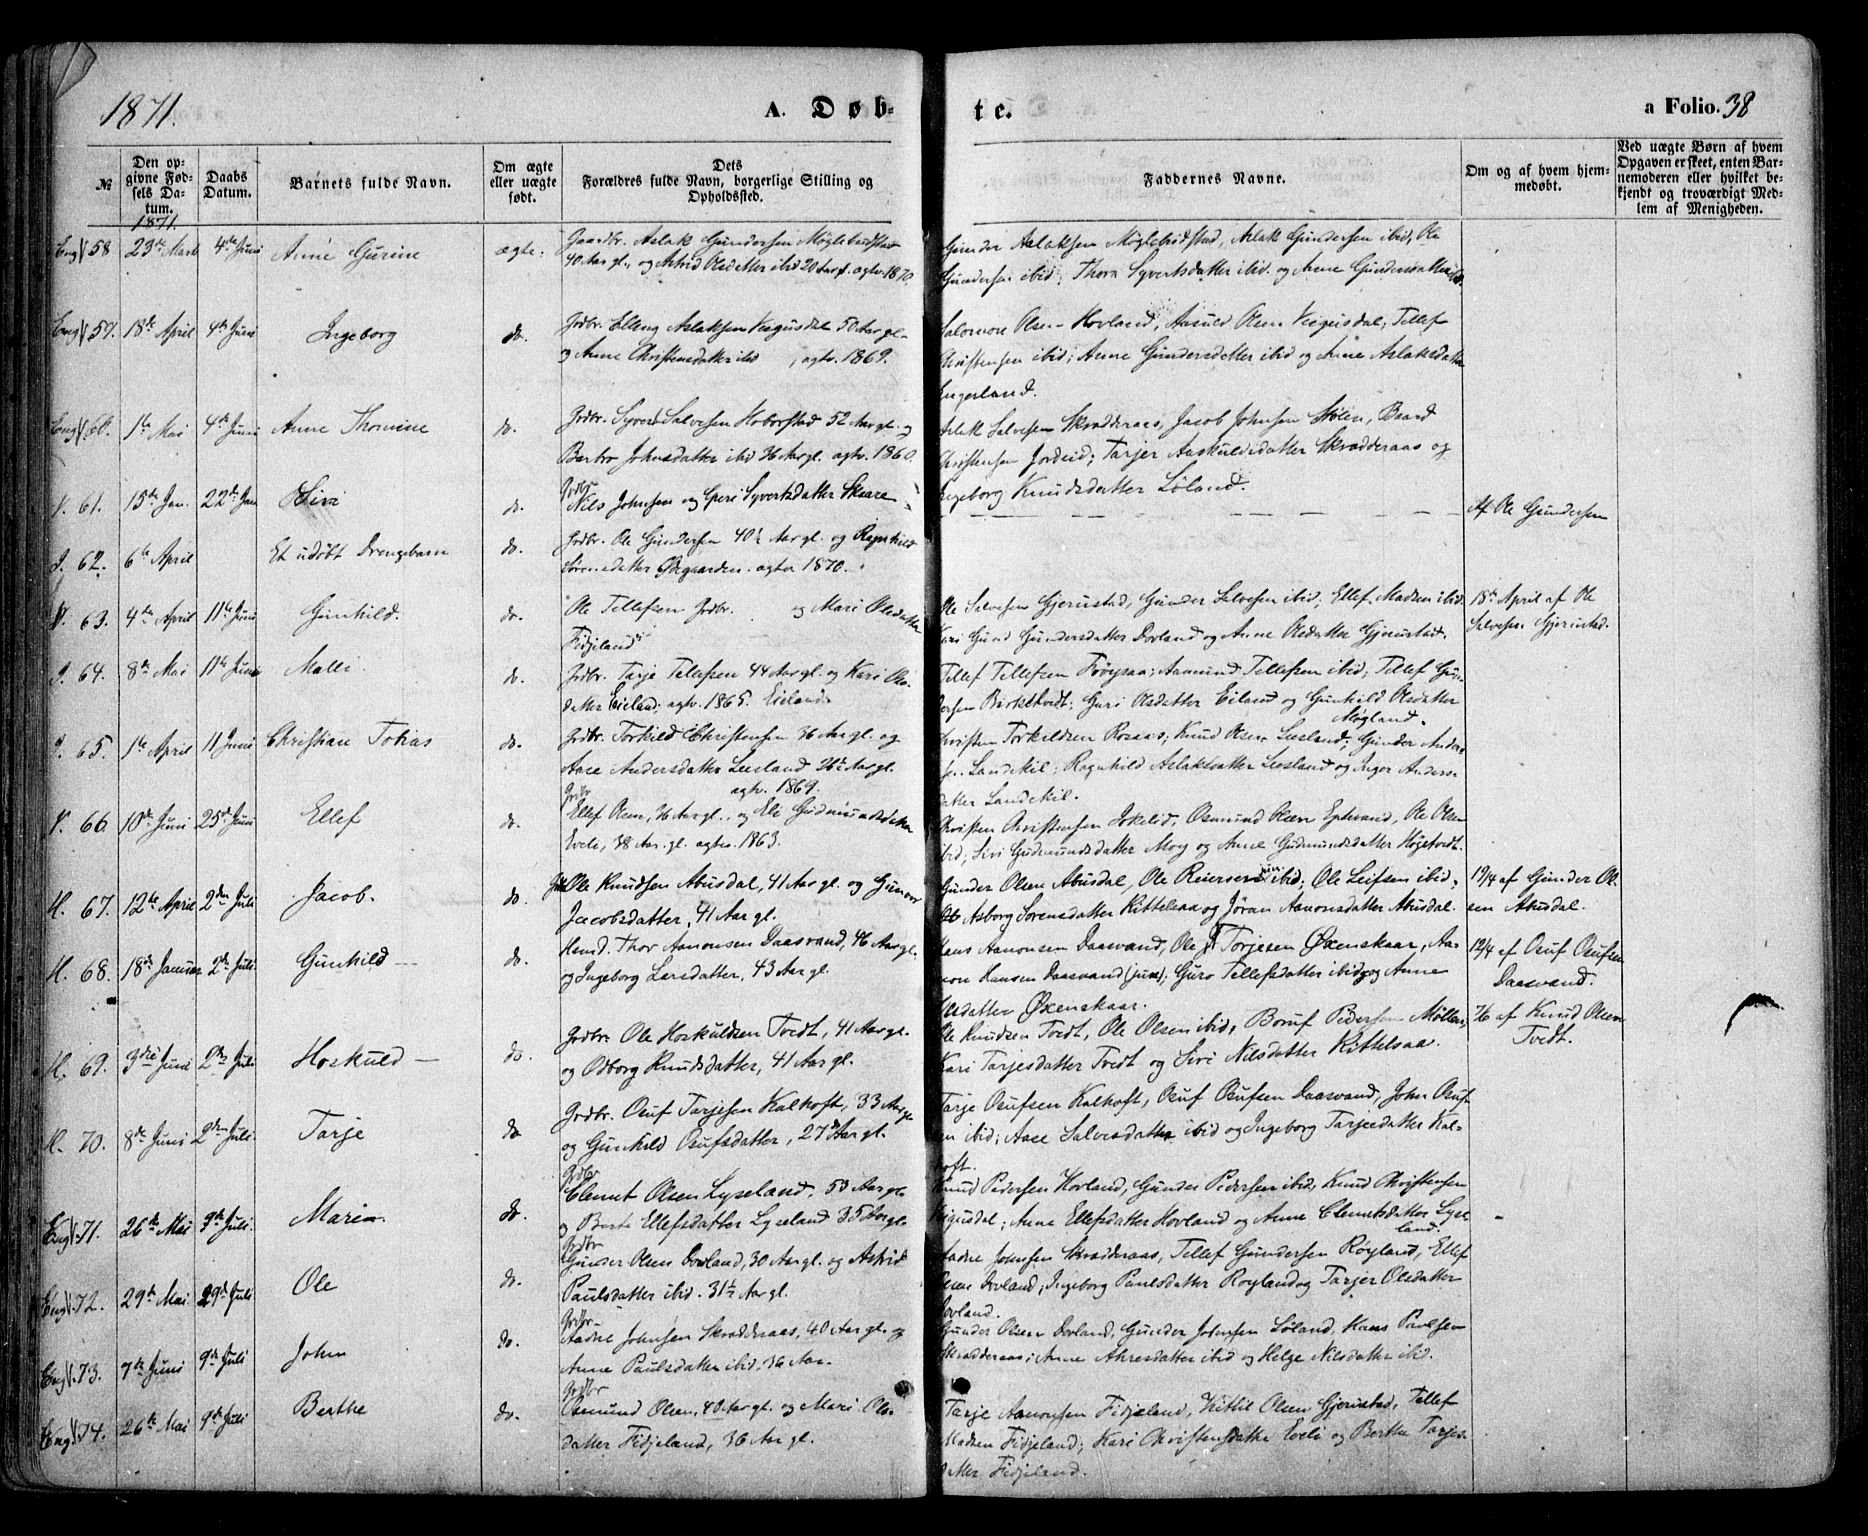 1871.
A. Døb-
te.
a Folio. 38
№
Den op-
givne Fød-
sels Da-
tum.
Daabs
Datum.
Barnets fulde Navn.
Om ægte
eller uægte
født.
Dets
Forældres fulde Navn, borgerlige Stilling og
Opholdssted.
Faddernes Navne.
Om og af hvem hjem-
medøbt.
Ved uægte Børn af hvem
Opgaven er skeet, enten Bar-
nemoderen eller hvilket be-
kjendt og troværdigt Med-
lem af Menigheden.
1871.
58 23de Marts 4de Juni Anne Gurine ægte.
Gaardbr. Aslak Gundersen Møglebudstad
40 Aar gl., og Astrid Olsdatter ibid 20 Aar gl. agtv. 1870.
Gunder Aslaksen Møglebudstad, Aslak Gundersen ibid, Ole
Gundersen ibid; Thora Syvertsdatter ibid. og Anne Gundersdatter ibid.
59. 18de April 4de Juni Ingeborg do.
Grdbr. Elling Aslaksen Vegusdal 50 Aar gl.
og Anne Christensdatter ibid , agtv. 1869.
Salomon Olsen Hovland, Aasuld Olsen Vegusdal; Tellef
Christensen ibid; Anne Gundersdatter ibid og Anne Aslaksdatter
Engesland.
60. 1te Mai 4de Juni Anne Thomine do.
Grdbr. Syvert Salvesen Hoborstad 52 Aar gl. og
Barbro Johnsdatter ibid 26 Aar gl. agtv. 1860.
Aslak Salvesen Skradderaas, Jacob Johnsen Stølen, Baard
Christensen Jordeid; Tarjer Aaskuldsdatter Skradderaas og
Ingeborg Knudsdatter Løland.
V. 61. 15de Jan. 22de Jan Siri do.
Grdbr
Nils Johnsen og Guri Syvertsdatter Skaare
Af Ole Gundersen
J. 62. 6te April Et udøbt Drengebarn do.
Grdbr. Ole Gundersen 40½ Aar gl. og Ragnhild
Sørensdatter Ødegaarden. agtv 1870.
V. 63. 4de April 11te Juni Gunhild. do.
Ole Tellefsen Grdbr. og Mari Olsdatter
Fidjeland
Ole Salvesen Gjerustad, Gunder Salvesen ibid; Ellef Madsen ibid.
Kari Gund Gundersdatter Dovland og Anne Olsdatter Gjerustad.
18de April af Ole
Salvesen Gjerustad.
J. 64. 8de Mai 11te Juni Malli. do.
Grdbr. Tarje Tellefsen 44 Aar gl. og Kari Ols-
datter Eieland; agtv. 1865. Eieland.
Tellef Tellefsen Frøysaa; Aamund Tellefsen ibid; Tellef Gun-
dersen Birketvedt; Guri Olsdatter Eiland og Gunhild Olsdatter
Møgland.
J. 65. 1te April 11 Juni Christian Tobias do.
Grdbr. Torkild Christensen 36 Aar gl. og
Aase Andersdatter Liesland 26½ Aar gl.
agtv. 1869.
Christen Torkildsen Rosaas; Knud Olsen Liesland; Gunder Anders-
sen Landekil; Ragnhild Aslaksdatter Liesland og Inger Anders-
datter Landekil.
V. 66. 10de Juni 25de Juni Ellef do.
Grdbr
Ellef Olsen, 36 Aar gl., og Eli Gudmundsdatter
Eveli, 38 Aar. gl. agtv. 1863.
Christen Christensen Jokelid, Osmund Olsen Eptevand, Ole Olsen
ibid; Siri Gudmundsdatter Moy og Anne Gudmundsdatter Høgetvedt.
H. 67. 12te April 2den Juli Jacob. do.
Grdbr Ole Knudsen Abusdal, 41 Aar gl. og Gunvor
Jacobsdatter, 41 Aar gl.
Gunder Olsen Abusdal, Ole Reiersen ibid; Ole Leifsen ibid;
Asborg Sørensdatter Kittelsaa og Jøran Aanonsdatter Abusdal.
19/4 af Gunder Ol-
sen Abusdal.
H. 68. 18de Januar 2de Juli Gunhild do.
Huusmd. Thor Aanonsen Daasvand, 46 Aar gl.
og Ingeborg Larsdatter, 43 Aar gl.
Hans Aanonsen Daasvand, Ole T Torjesen Øxenskaar, Aa-
non Hansen Daasvand (jun), Guro Tellefsdatter ibid og Anne
Olsdatter Øxenskaar.
19/4 af Osuf Osufsen
Daasvand.
H. 69. 3die Juni 2de Juli Hoskuld do.
Grdbr. Ole Hoskuldsen Tvedt, 41 Aar gl.
og Odborg Knudsdatter, 41 Aar gl.
Ole Knudsen Tvedt, Ole Olsen ibid, Boruf Pedersen Møller,
Kari Tarjesdatter Tvedt og Siri Nilsdatter Kittelsaa.
7/6 af Knud Olsen
Tvedt.
H. 70. 8de Juni 2den Juli. Tarje do
Grdbr. Osuf Tarjesen Kalhoft, 33 Aar gl.
og Gunhild Osufsdatter, 27 Aar gl.
Tarje Osufsen Kalhoft, Osuf Osufsen Daasvand, John Osuf-
sen ibid; Aase Salvesdatter ibid og Ingeborg Tarjesdatter Kal-
hoft.
71. 26de Mai 9de Juli. Maria do.
Grdbr
Clemet Olsen Lyseland, 53 Aar gl.
og Berte Ellefsdatter Lyseland 35 Aar gl.
Knud Pedersen Hovland, Gunder Pedersen ibid, Knud Christensen
Vegusdal; Anne Ellefsdatter Hovland og Anne Clemetsdatter Lyse-
land.
72. 29de Mai 9de Juli Ole do.
Grdbr
Gunder Olsen Dovland, 30 Aar gl. og Astrid
Paulsdatter ibid. 31½ Aar gl.
Aadne Johnsen Skradderaas, Tellef Gundersen Røyland, Ellef
Olsen Dovland; Ingeborg Paulsdatter Royland og Tarjer Olsdatter
Dovland.
73. 7de Juni 9de Juli John do.
Grdbr
Aadne Johnsen Skradderaas, 40 Aar gl. og
Anne Paulsdatter ibid. 36 Aar.
Gunder Olsen Dovland, Gunder Johnsen Løland, Hans Paulsen
Skradderaas; Anne Ahresdatter ibid og Helge Nilsdatter ibid.
74. 26de Mai 9de Juli Berthe do.
Grdbr
Osmund Olsen, 40 Aar gl. og Mari Ols-
datter Fidjeland, 36 Aar gl.
Tarje Aanonsen Fidjeland, Kittil Olsen Gjerustad, Tellef
Madsen Fidjeland; Kari Christensdatter Eveli og Berthe Tarjes-
datter Fidjeland.